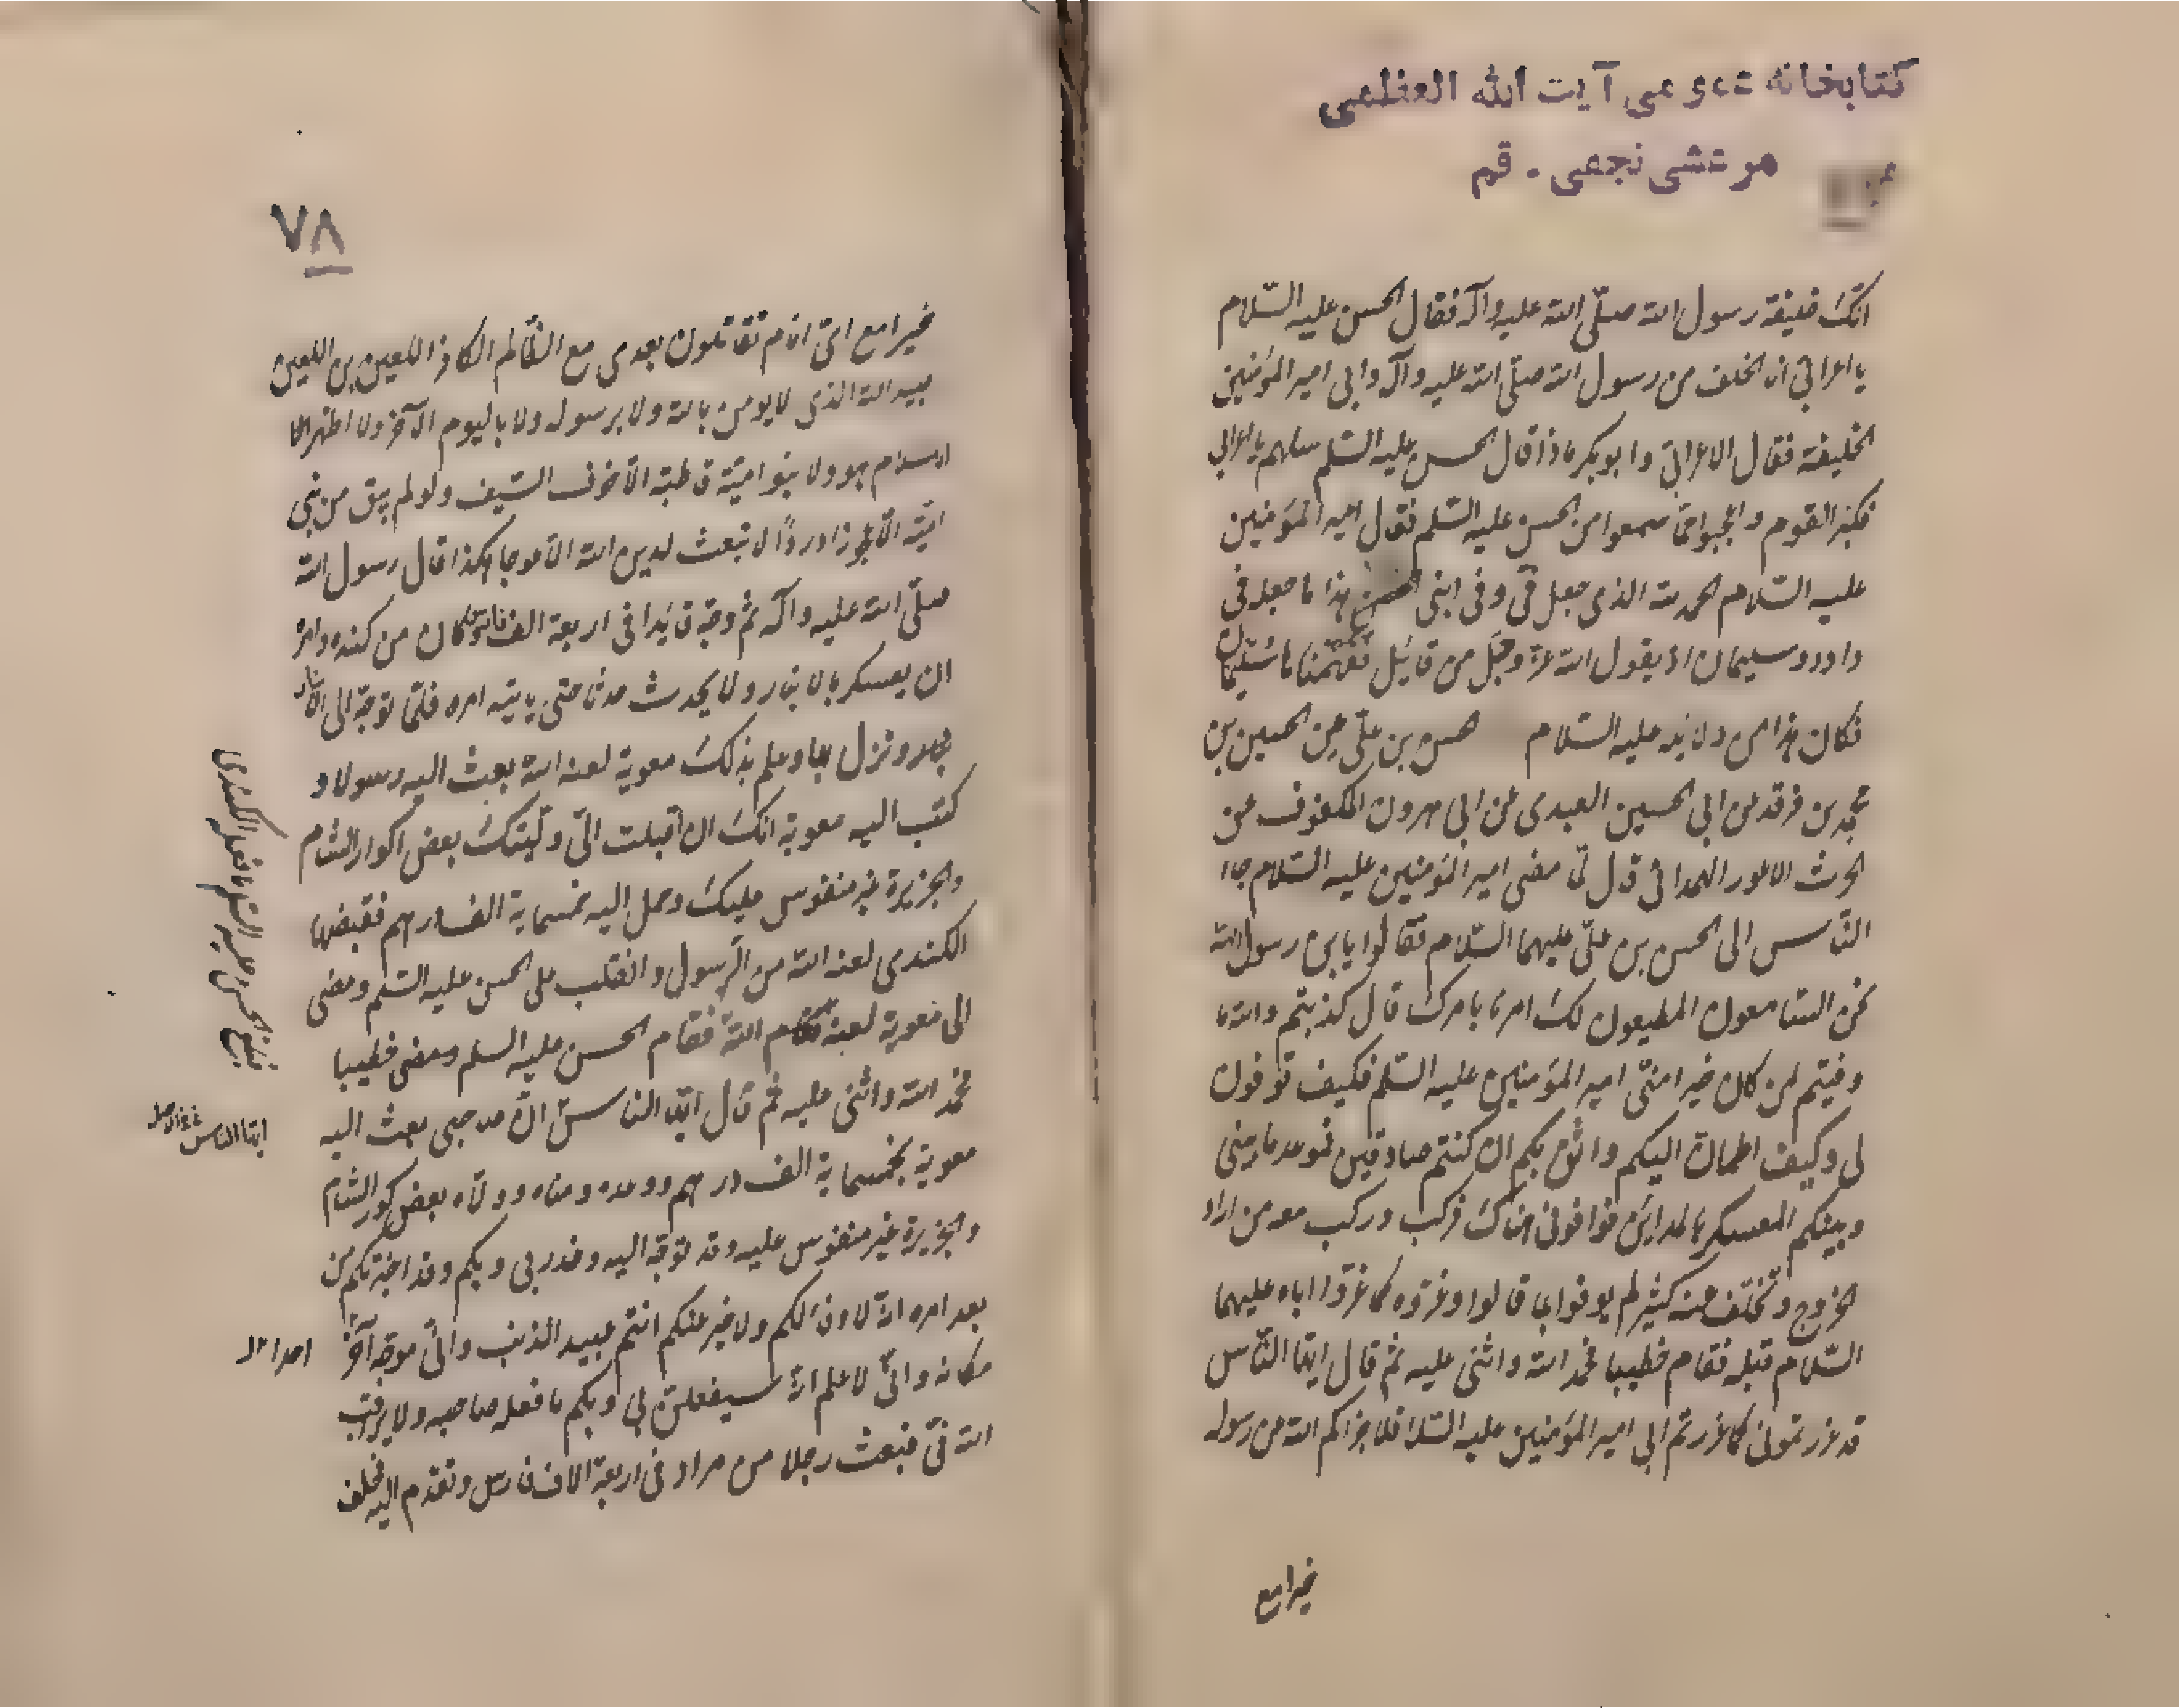 كتابخانه عمومى آيت الله العظمى
مرعشى نجفى - قم
انك خليفة رسول الله صلّى الله عليه وآله فقال الحسن عليه السّلام
يا اعرابى انا الخلف من رسول الله صلّى الله عليه وآله وابى امير المؤمنين
الخليفة فقال الاعرابى وابو بكر ماذا قال الحسن عليه السّلم سلهم يا اعرابى
فكبر القوم وعجبوا ممّا سمعوا من الحسن عليه السّلم فقال امير المؤمنين
عليه السّلام الحمد لله الذى جعل فىّ وفى ابنى الحسن هذا ما جعله فى
داود وسليمان اذ يقول الله عزّ وجلّ من قائل ففهّمناها سُليمان
فكان هذا من دلائله عليه السّلام حسن بن علىّ عن الحسين بن
محمّد بن فرقد عن ابى الحسين العبدى عن ابى هرون المكفوف عن
الحرث الاعور الهمدانى قال لمّا مضى امير المؤمنين عليه السّلام جاء
النّاس الى الحسن بن علىّ عليهما السّلام فقالوا يابن رسول الله
نحن السّامعون المطيعون لك امرنا بامرك قال كذبتم والله ما
وفيتم لمن كان خيرا منّى امير المؤمنين عليه السّلم فكيف توفون
لى وكيف اطمأنّ اليكم واثق بكم ان كنتم صادقين فموعد ما بينى
وبينكم المعسكر بالمداين فوافونى هناك فركب وركب معه من اراد
الخروج وتخلّف عنه كثير لم يوفوا بما قالوا وغرّوه كما غرّوا اباه عليهما
السّلام قبله فقام خطيبا فحمد الله واثنى عليه ثم قال ايّها النّاس
قد غررتمونى كما غررتم ابى امير المؤمنين عليه السّلم فلا جزاكم الله عن رسوله
خيرا مع
٧٨
خيرا مع اىّ امام تقاتلون بعدى مع الظّالم الكافر اللعين بن اللعين
عبيد الله الذى لا يومن بالله ولا برسوله ولا باليوم الآخر ولا اظهر
الاسلام هو ولا بنو اميّة قاطبة الّا خوف السّيف ولو لم يبق من بنى
اميّة الّا عجوز ادردا لابتغت لدين الله الا عوجا هكذا قال رسول الله
صلّى الله عليه وآله ثم وجّه قايدا فى اربعة الف كان من كنده وامره
ان يعسكر بالانبار ولا يحدث حدثا حتى ياتيه امره فلمّا توجّه الى الانبار
ونزل بها وعلم بذلك معوية لعنه الله بعث اليه رسولا و
كتب اليه معوية انك ان اقبلت الىّ ولّيتك بعض اكوار الشام
والجزيرة غير منفوس عليك وحمل اليه بخمسماية الف درهم فقبضها
الكندى لعنه الله من الرّسول وانقلب على الحسن عليه السّلم ومضى
الى معوية لعنه الله فقام الحسن عليه السلم ومضى خطيبا
فحمد الله واثنى عليه ثم قال ايّها الناس انّ صاحبى بعث اليه
معوية بخمسماية الف درهم ووعده ومناه وولّاه بعض كور الشام
والجزيرة غير منفوس عليه وقد توجّه اليه وغدر بى وبكم وقد اخبرتكم من
بعد امره انّه لا وفا لكم ولا خير عنكم انتم عبيد الدنيا وانّى موجّه آخر
مكانه وانّى لاعلم انّه سيفعلنّ بى وبكم ما فعله صاحبه ولا يراقب
الله فىّ فبعث رجلا من مراد فى اربعة الاف فارس وتقدم اليه فحلف
ايّها الناس